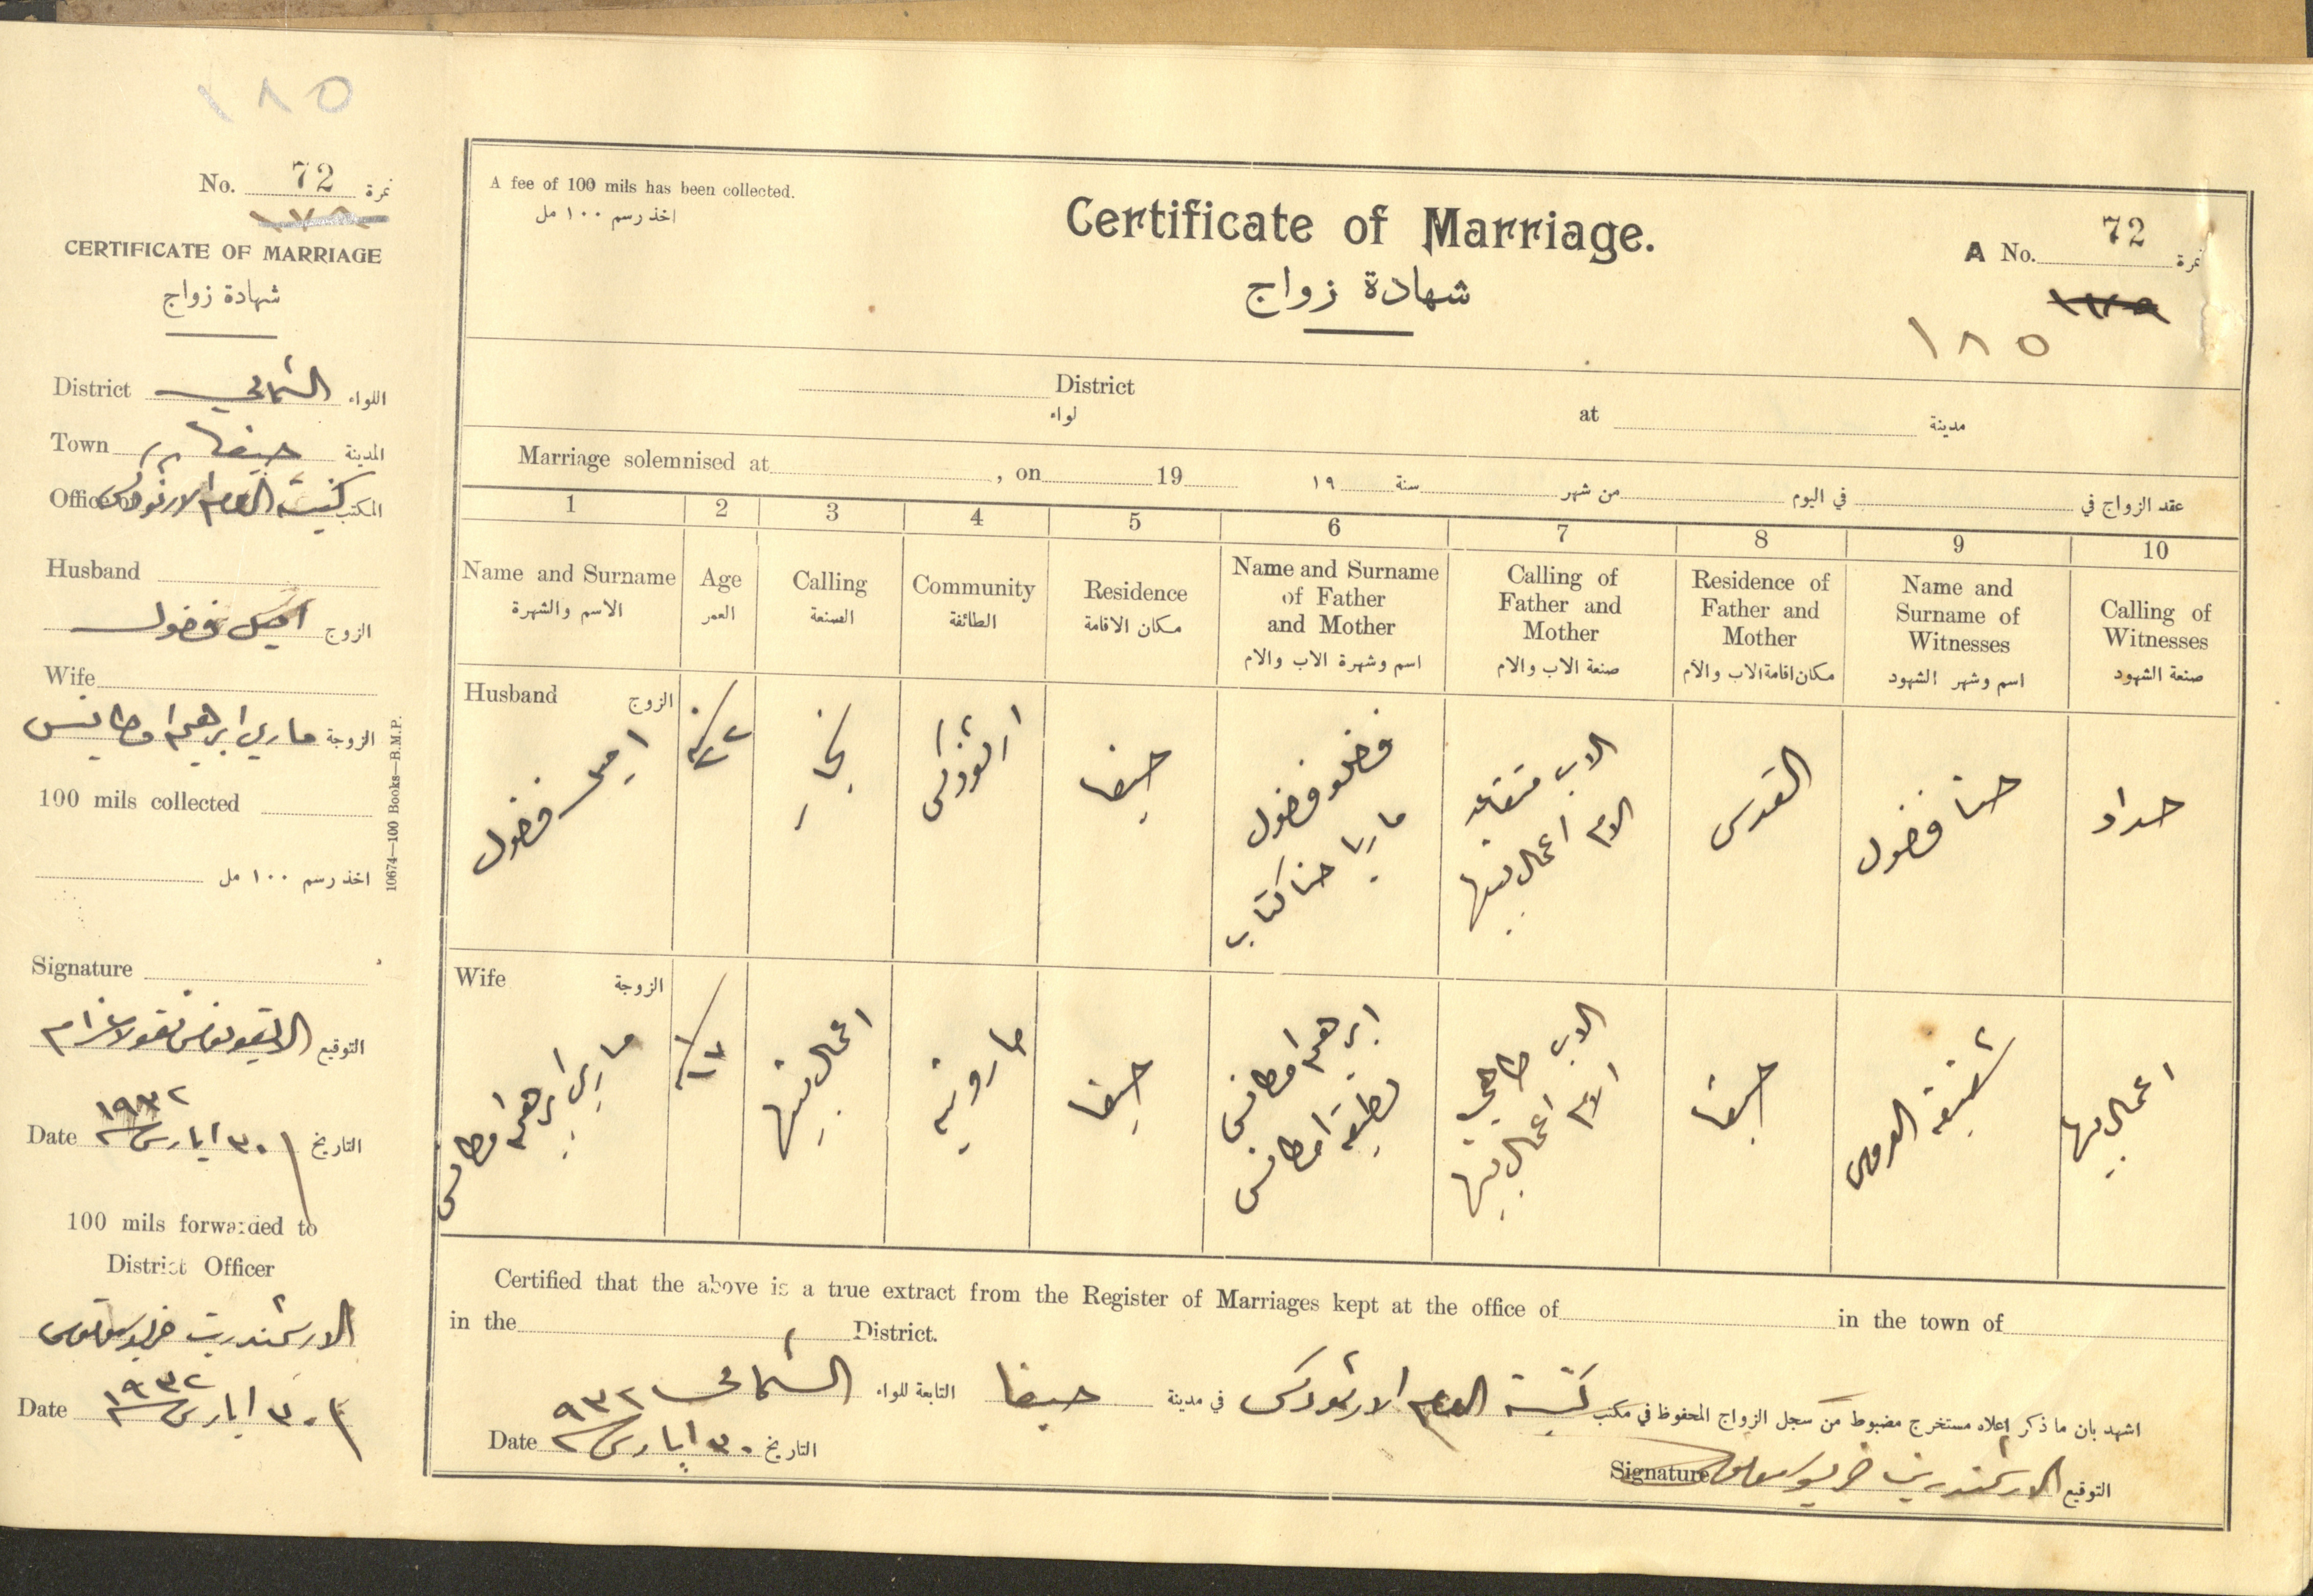 ١٨٥
No. 72 نمرة
CERTIFICATE OF MARRIAGE
شهادة زواج
District الشمالي اللواء
Town حيفا المدينة
Office كنيسة الروم الارثوذكس المكتب
Husband
الزوج اميل فضول
Wife
الزوجة ماري ابرهيم
100 mils collected
اخذ رسم ١٠٠ مل
Signature
التوقيع نقولا
١٩٣٢
Date ٣٠ ايار التاريخ
100 mils forwarded to
District Officer
الارشمندريت
١٩٣٢
Date ٣٠ ايار
10674—100 Books—B.M.P.
A fee of 100 mils has been collected.
اخذ رسم ١٠٠ مل
Certificate of Marriage.
شهادة زواج
A No. 72 نمرة
١٨٥
District at مدينة
لواء
Marriage solemnised at , on 19 ١٩ سنة من شهر في اليوم عقد الزواج في
1 2 3 4 5 6 7 8 9 10
Name and Surname
الاسم والشهرة
Age
العمر
Calling
الصنعة
Community
الطائفة
Residence
مكان الاقامة
Name and Surname
of Father
and Mother
اسم وشهرة الاب والام
Calling of
Father and
Mother
صنعة الاب والام
Residence of
Father and
Mother
مكان اقامة الاب والام
Name and
Surname of
Witnesses
اسم وشهر الشهود
Calling of
Witnesses
صنعة الشهود
Husband الزوج
اميل فضول
٢٢
نجار
ارثوذكس
حيفا
فضلو فضول
ماريا حنا كتاب
الاب متقاعد
الام اعمال بيتها
القدس
حنا فضول
حداد
Wife الزوجة
ماري ابرهيم
اعمال بيتها
مارونيه
حيفا
ابرهيم
لطيفة
الاب طاهي
الام اعمال بيتها
حيفا
شفيقه
اعمال بيتها
Certified that the above is a true extract from the Register of Marriages kept at the office of in the town of
in the District.
اشهد بان ما ذكر اعلاه مستخرج مضبوط من سجل الزواج المحفوظ في مكتب كنيسة الروم الارثوذكس في مدينة حيفا التابعة للواء الشمالي
Date ٣٠ ايار ٩٣٢ التاريخ
Signature الارشمندريت التوقيع